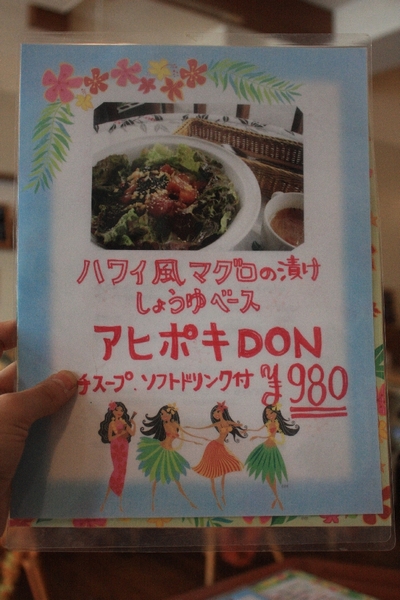 ハワイ風マグロの漬け
しょうゆベース
アヒポキDON
スープ.ソフトドリンク付 ¥980